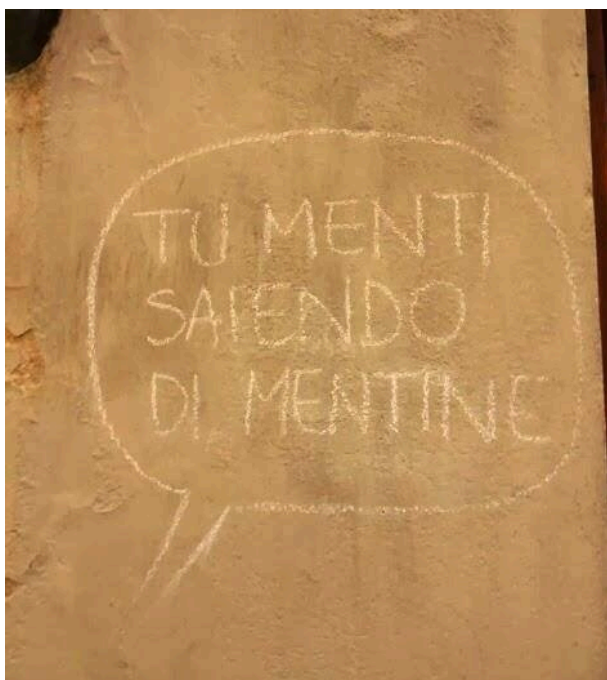 TU MENTI
SAPENDO
DI MENTINE